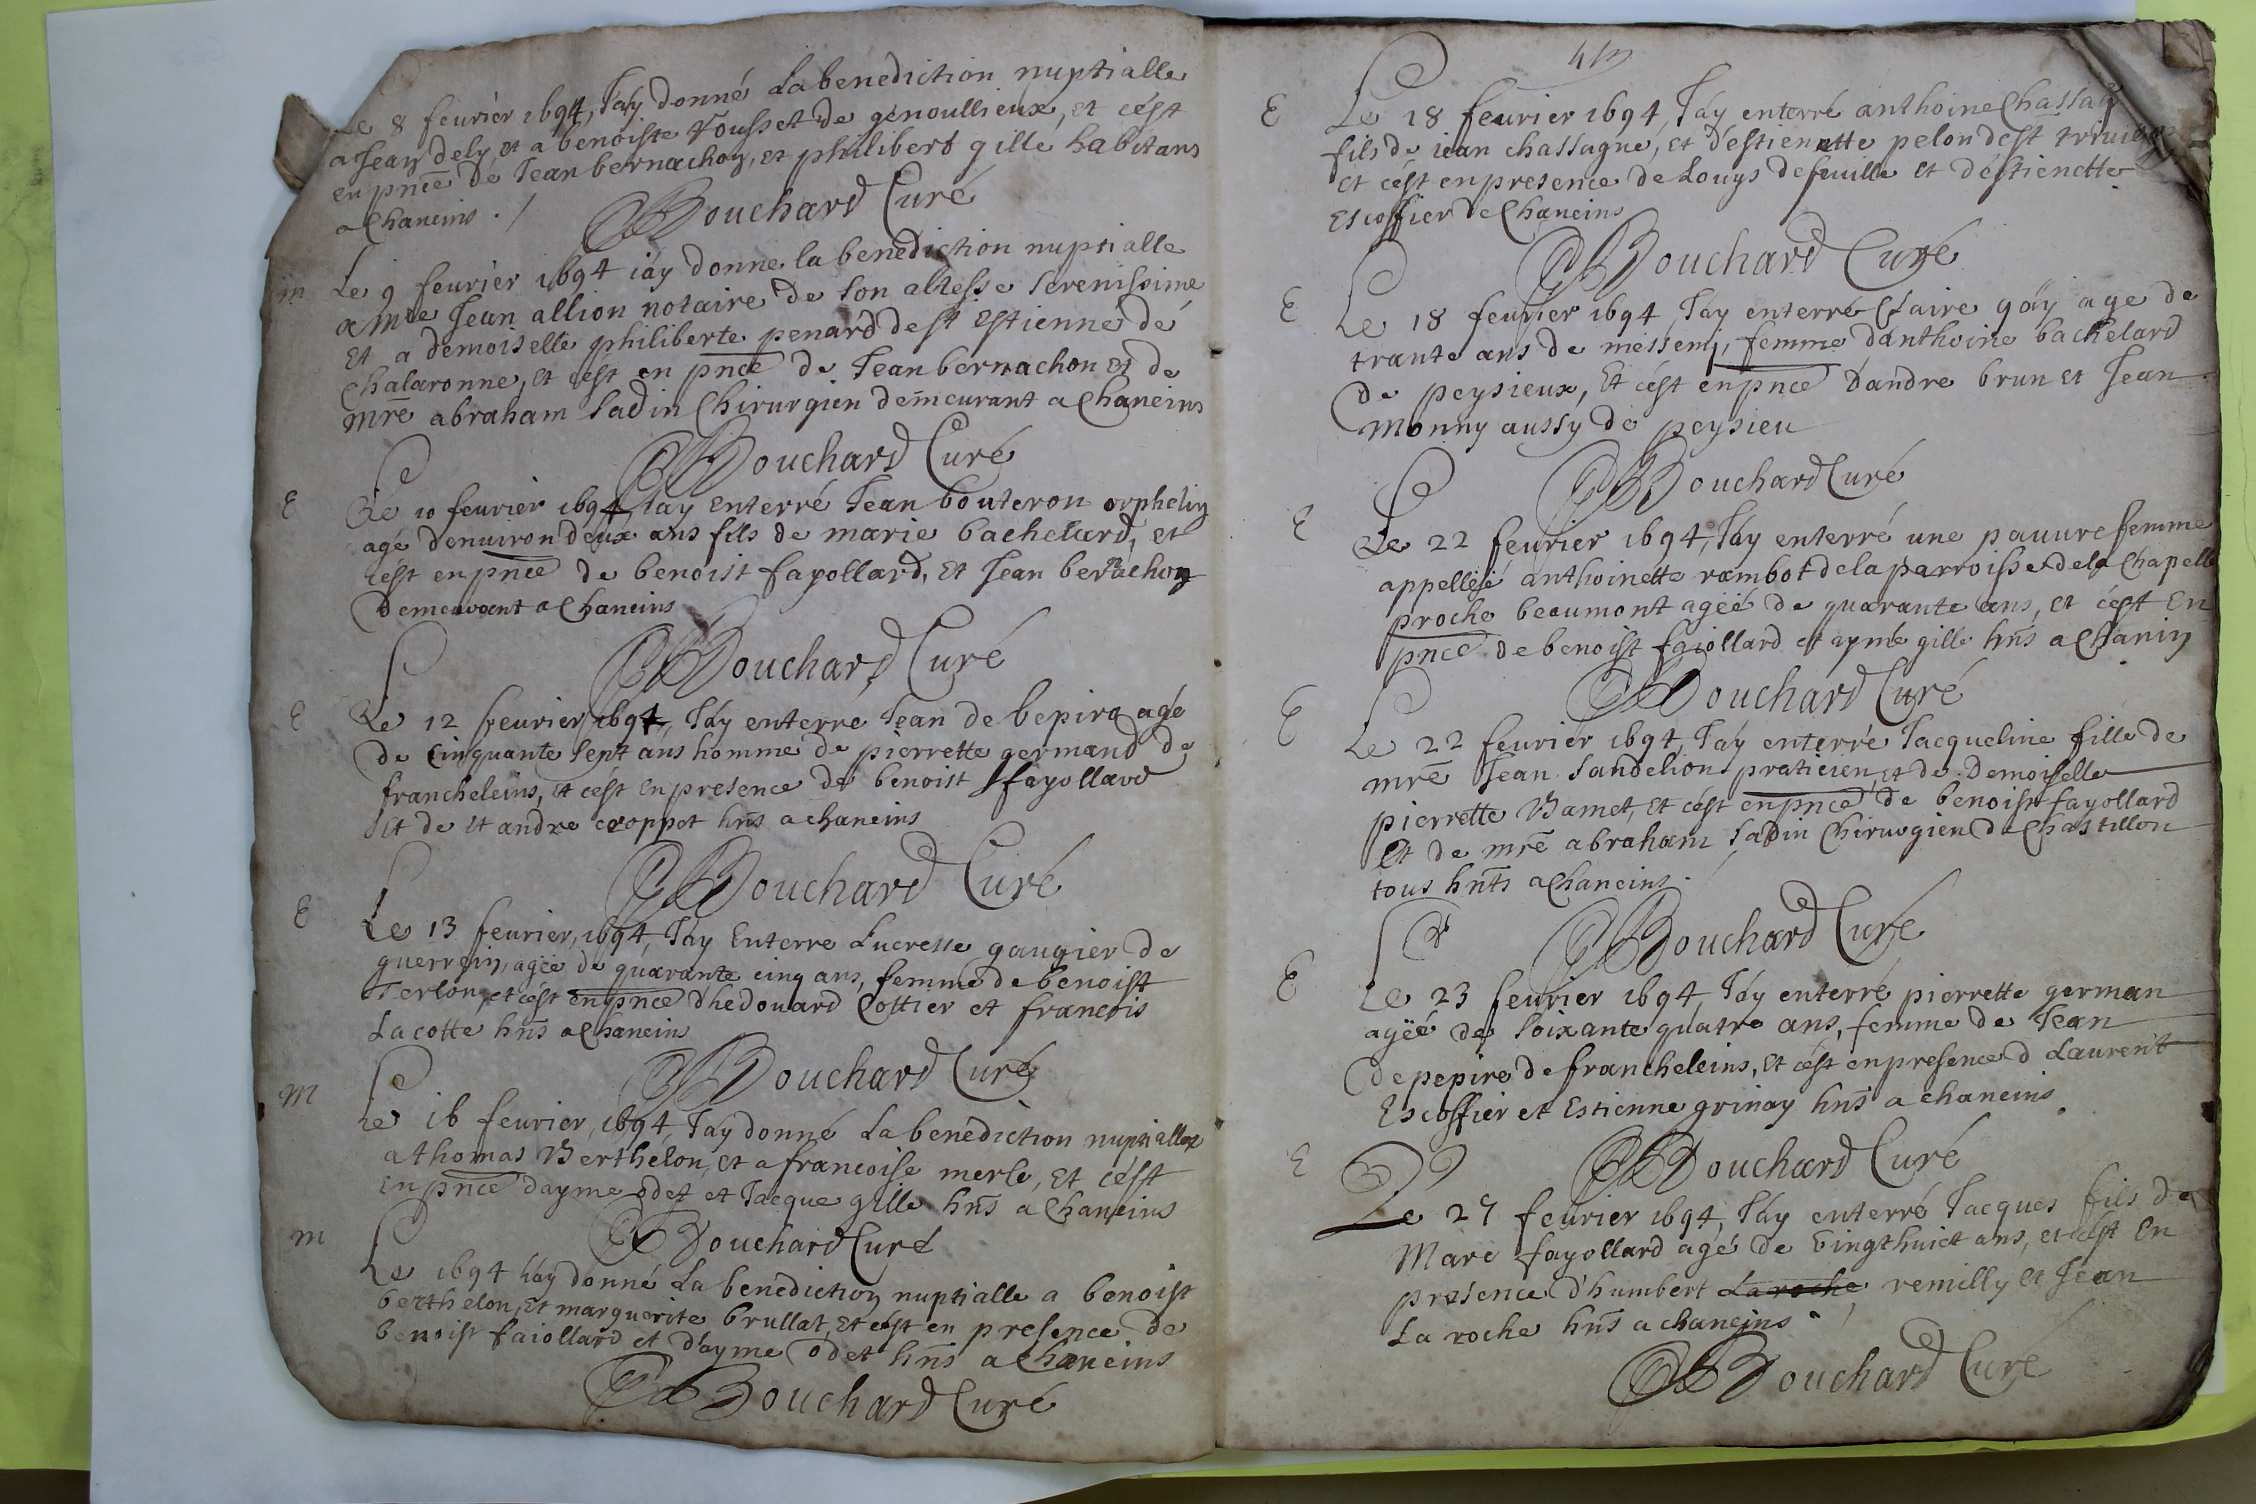 Le 8 feurier 1694, J'ay donné La benediction nuptialle
a Jean dely, et a benoiste Vousset de genoullieux, et c'est
en pnce de Jean bernachon, et philibert gille habitans
a Chaneins ./
Bouchard Curé
m Le 9 feurier 1694 i'ay donne la benediction nuptialle
a Mre Jean allion notaire de son altesse serenissime
Et a demoiselle philiberte penard dest Estienne de
Chalaronne, et c'est en pnce de Jean bernachon et de
mre abraham sadin Chirurgien demeurant a Chaneins
Bouchard Curé
E Le 10 feurier 1694, J'ay enterré Jean bouteron orphelin
agé denuiron deux ans fils de marie bachelard, et
c'est en pnce de benoist fayollard, et Jean bernachon
Demeurant a Chaneins
Bouchard Curé
E Le 12 feurier 1694, J'ay enterre Jean de bepira agé
de Cinquante sept ans homme de pierrette germand de
francheleins, et c'est en presence de benoist fayollard
dit de et andre croppet hns a chaneins
Bouchard Curé
E Le 13 feurier, 1694, J'ay Enterre Lucresse gaugier de
guerrein, agée de quarante cinq ans, femme de benoist
Terlon, et c'est en pnce d'hedouard Cottier et francois
Lacotte hns a Chanein
Bouchard Curé
M Le 16 feurier, 1694, J'ay donné La benediction nuptialle
a thomas Berthelon, et a francoise merle, et c'est
en pnce dayme odet et Jacque gille hns a Chaneins
Bouchard Curé
m Le 1694 i'ay donné La benediction nuptialle a benoist
berthelon, et marguerite brullat, et c'est en presence de
benoist faiollard et d'ayme odet hns a Chaneins
Bouchard Curé
E Le 18 feurier 1694, J'ay enterré anthoine Chassag
fils de iean chassagne, et d'estienette pelon dest triuier
et c'est en presence de Louys defeuille et d'estienette
Escoffier de Chaneins
Bouchard Curé
E Le 18 feurier 1694, J'ay enterré Claire gay age de
trante ans de messemy, femme d'anthoine bachelard
de peysieux, Et c'est en pnce d'andre brun et Jean
Monny aussy de peysieu
Bouchard Curé
E Le 22 feurier 1694, J'ay enterré une pauure femme
appelleé anthoinette rambot de la parroisse de la Chapelle
proche beaumont ageé de quarante ans, et c'est En
pnce de benoist faiollard et aymé gille hns a Chanin
Bouchard Curé
E Le 22 feurier 1694, J'ay enterré Jacqueline fille de
mre Jean Sandelion praticien, et de Demoiselle
pierrette Bamet, et c'est en pnce de benoist fayollard
Et de mre abraham sadin Chirurgien de Chastillon
tous hnts a Chaneins.
Bouchard Curé
E Le 23 feurier 1694, J'ay enterré pierrette german
ageé de soixante quatre ans, femme de Jean
de pepire de francheleins, et c'est en presence d Laurent
Escoffier et Estienne grinay hns a chaneins.
Bouchard Curé
E Le 27 feurier 1694, J'ay enterré Jacques fils de
Marc fayollard agé de Vingthuict ans, et c'est En
presence d'humbert La roche remilly et Jean
La roche hns a chaneins
Bouchard Curé